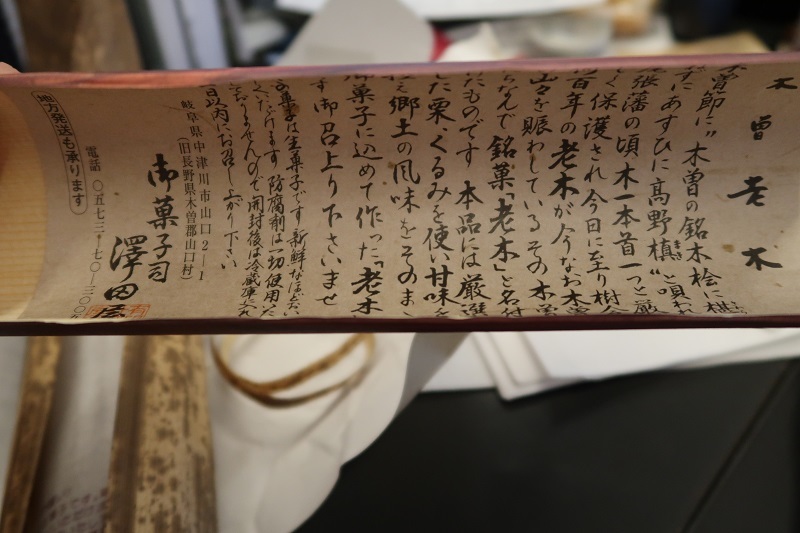 木曽老木
木曽節に"木曽の銘木桧に椹
ずにあすひに高野槙"と唄われ
まき
尾張藩の頃木一本首一つと厳
く保護され今日に至り樹令
百年の老木が今なお木曽
山々を賑わしているその木曽
ちなんで銘菓「老木」と名付
たものです 本品には厳選
た栗、くるみを使い甘味を
控え郷土の風味をそのまま
御菓子に込めて作った「老木
す御召上り下さいませ
の菓子は生菓子です 新鮮なほどおい
しくいただけます 防腐剤は一切使用いた
ておりませんので開封後は冷蔵庫に入れ
日以内にお召し上がり下さい
岐阜県中津川市山口2−1
(旧長野県木曽郡山口村)
御菓子司 澤田屋
電話 〇五七三−七〇−三〇〇
地方発送も承ります